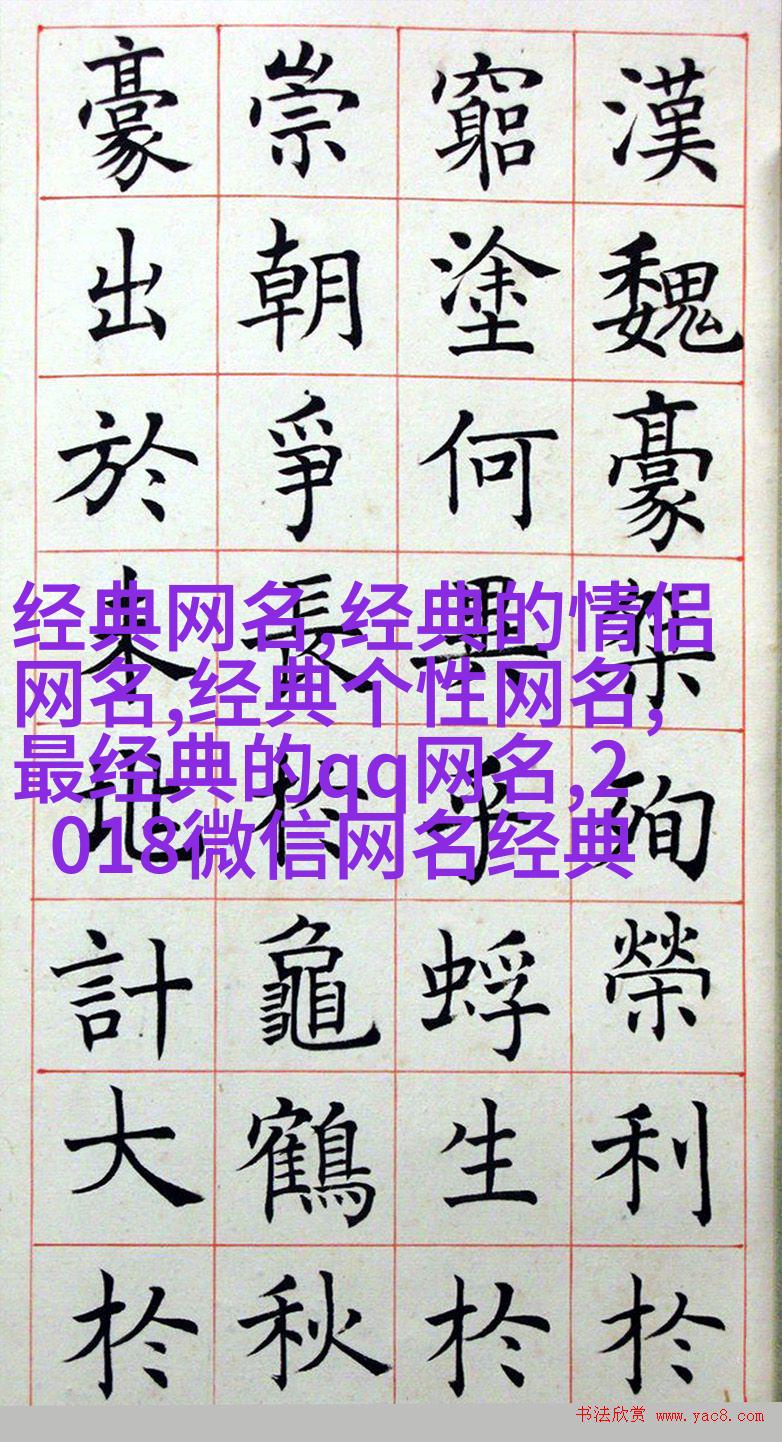 漢魏豪桀殉榮利扵
窮塗何異乎蜉生扵
崇朝爭長扵龜鶴秋
豪出於未計大扵
经典网名,经典的情侣
网名,经典个性网名,
最经典的qq网名,2
018微信网名经典
书法欣赏 www.yac8.com